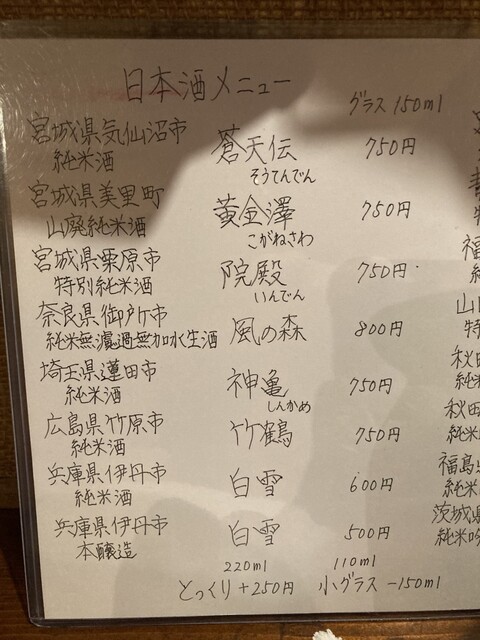 日本酒メニュー
グラス 150ml
宮城県気仙沼市 蒼天伝 750円
純米酒 そうてんでん
宮城県美里町 黄金澤 750円
山廃純米酒 こがねさわ
宮城県栗原市 院殿 750円
特別純米酒 いんでん
奈良県御所市 風の森 800円
純米無濾過無加水生酒
埼玉県蓮田市 神亀 750円
純米酒 しんかめ
広島県竹原市 竹鶴 750円
純米酒
兵庫県伊丹市 白雪 600円
純米酒
兵庫県伊丹市 白雪 500円
本醸造
220ml 110ml
とっくり+250円 小グラス-150円
山
特
秋田
純米
秋田
純米
福島
純米
茨城県
純米吟